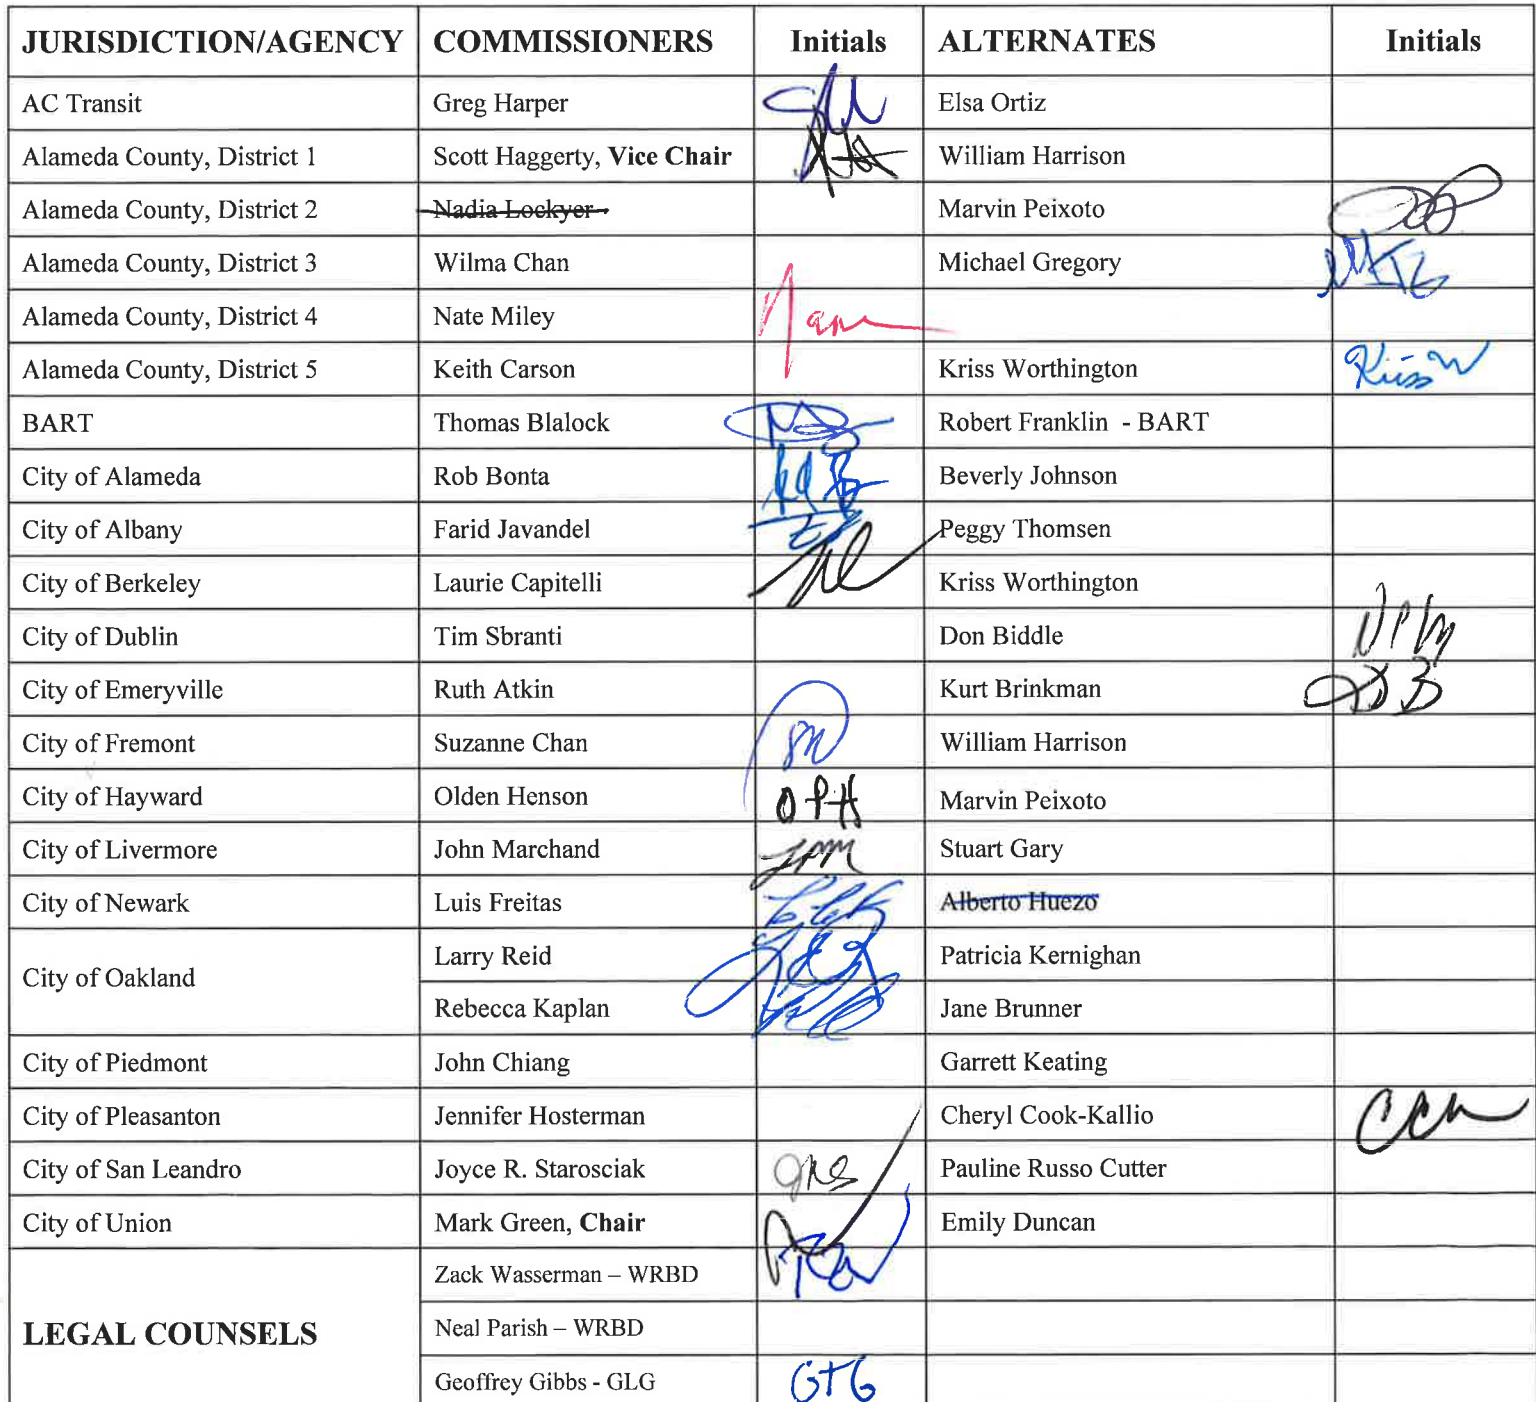 JURISDICTION/AGENCY COMMISSIONERS Initials ALTERNATES Initials
AC Transit Greg Harper Elsa Ortiz
Alameda County, District 1 Scott Haggerty, Vice Chair William Harrison
Alameda County, District 2 Nadia Lockyer Marvin Peixoto
Alameda County, District 3 Wilma Chan Michael Gregory
Alameda County, District 4 Nate Miley
Alameda County, District 5 Keith Carson Kriss Worthington Kriss W
BART Thomas Blalock Robert Franklin - BART
City of Alameda Rob Bonta Beverly Johnson
City of Albany Farid Javandel Peggy Thomsen
City of Berkeley Laurie Capitelli Kriss Worthington
City of Dublin Tim Sbranti Don Biddle
City of Emeryville Ruth Atkin Kurt Brinkman
City of Fremont Suzanne Chan William Harrison
City of Hayward Olden Henson OPH Marvin Peixoto
City of Livermore John Marchand JPM Stuart Gary
City of Newark Luis Freitas Alberto Huezo
City of Oakland Larry Reid Patricia Kernighan
Rebecca Kaplan Jane Brunner
City of Piedmont John Chiang Garrett Keating
City of Pleasanton Jennifer Hosterman Cheryl Cook-Kallio
City of San Leandro Joyce R. Starosciak JRS Pauline Russo Cutter
City of Union Mark Green, Chair Emily Duncan
LEGAL COUNSELS Zack Wasserman – WRBD
Neal Parish – WRBD
Geoffrey Gibbs - GLG GTG